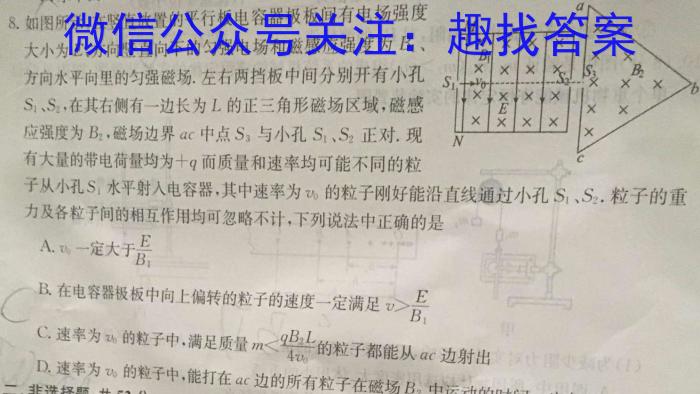 微信公众号关注：趣找答案
8.如图所
放置的平行板电容器极板间有电场强度
大小为
方向水平向里的匀强磁场.左右两挡板中间分别开有小孔
S₁、S₂,在其右侧有一边长为 L 的正三角形磁场区域,磁感
应强度为 B₂,磁场边界 ac 中点 S₃ 与小孔 S₁、S₂ 正对.现
有大量的带电荷量均为+q 而质量和速率均可能不同的粒
子从小孔 S₁ 水平射入电容器,其中速率为 v₀ 的粒子刚好能沿直线通过小孔 S₁、S₂.粒子的重
力及各粒子间的相互作用均可忽略不计,下列说法中正确的是
A. v₀ 一定大于 E/B₁
B. 在电容器极板中向上偏转的粒子的速度一定满足 v>E/B₁
C. 速率为 v₀ 的粒子中,满足质量 m<qB₂L/4v₀ 的粒子都能从 ac 边射出
D. 速率为 v₀ 的粒子中,能打在 ac 边的所有粒子在磁场 B₂ 中运动的时间
二、非选择题
a
S₁
v₀
S₂
S₃
B₂
b
E
N
c